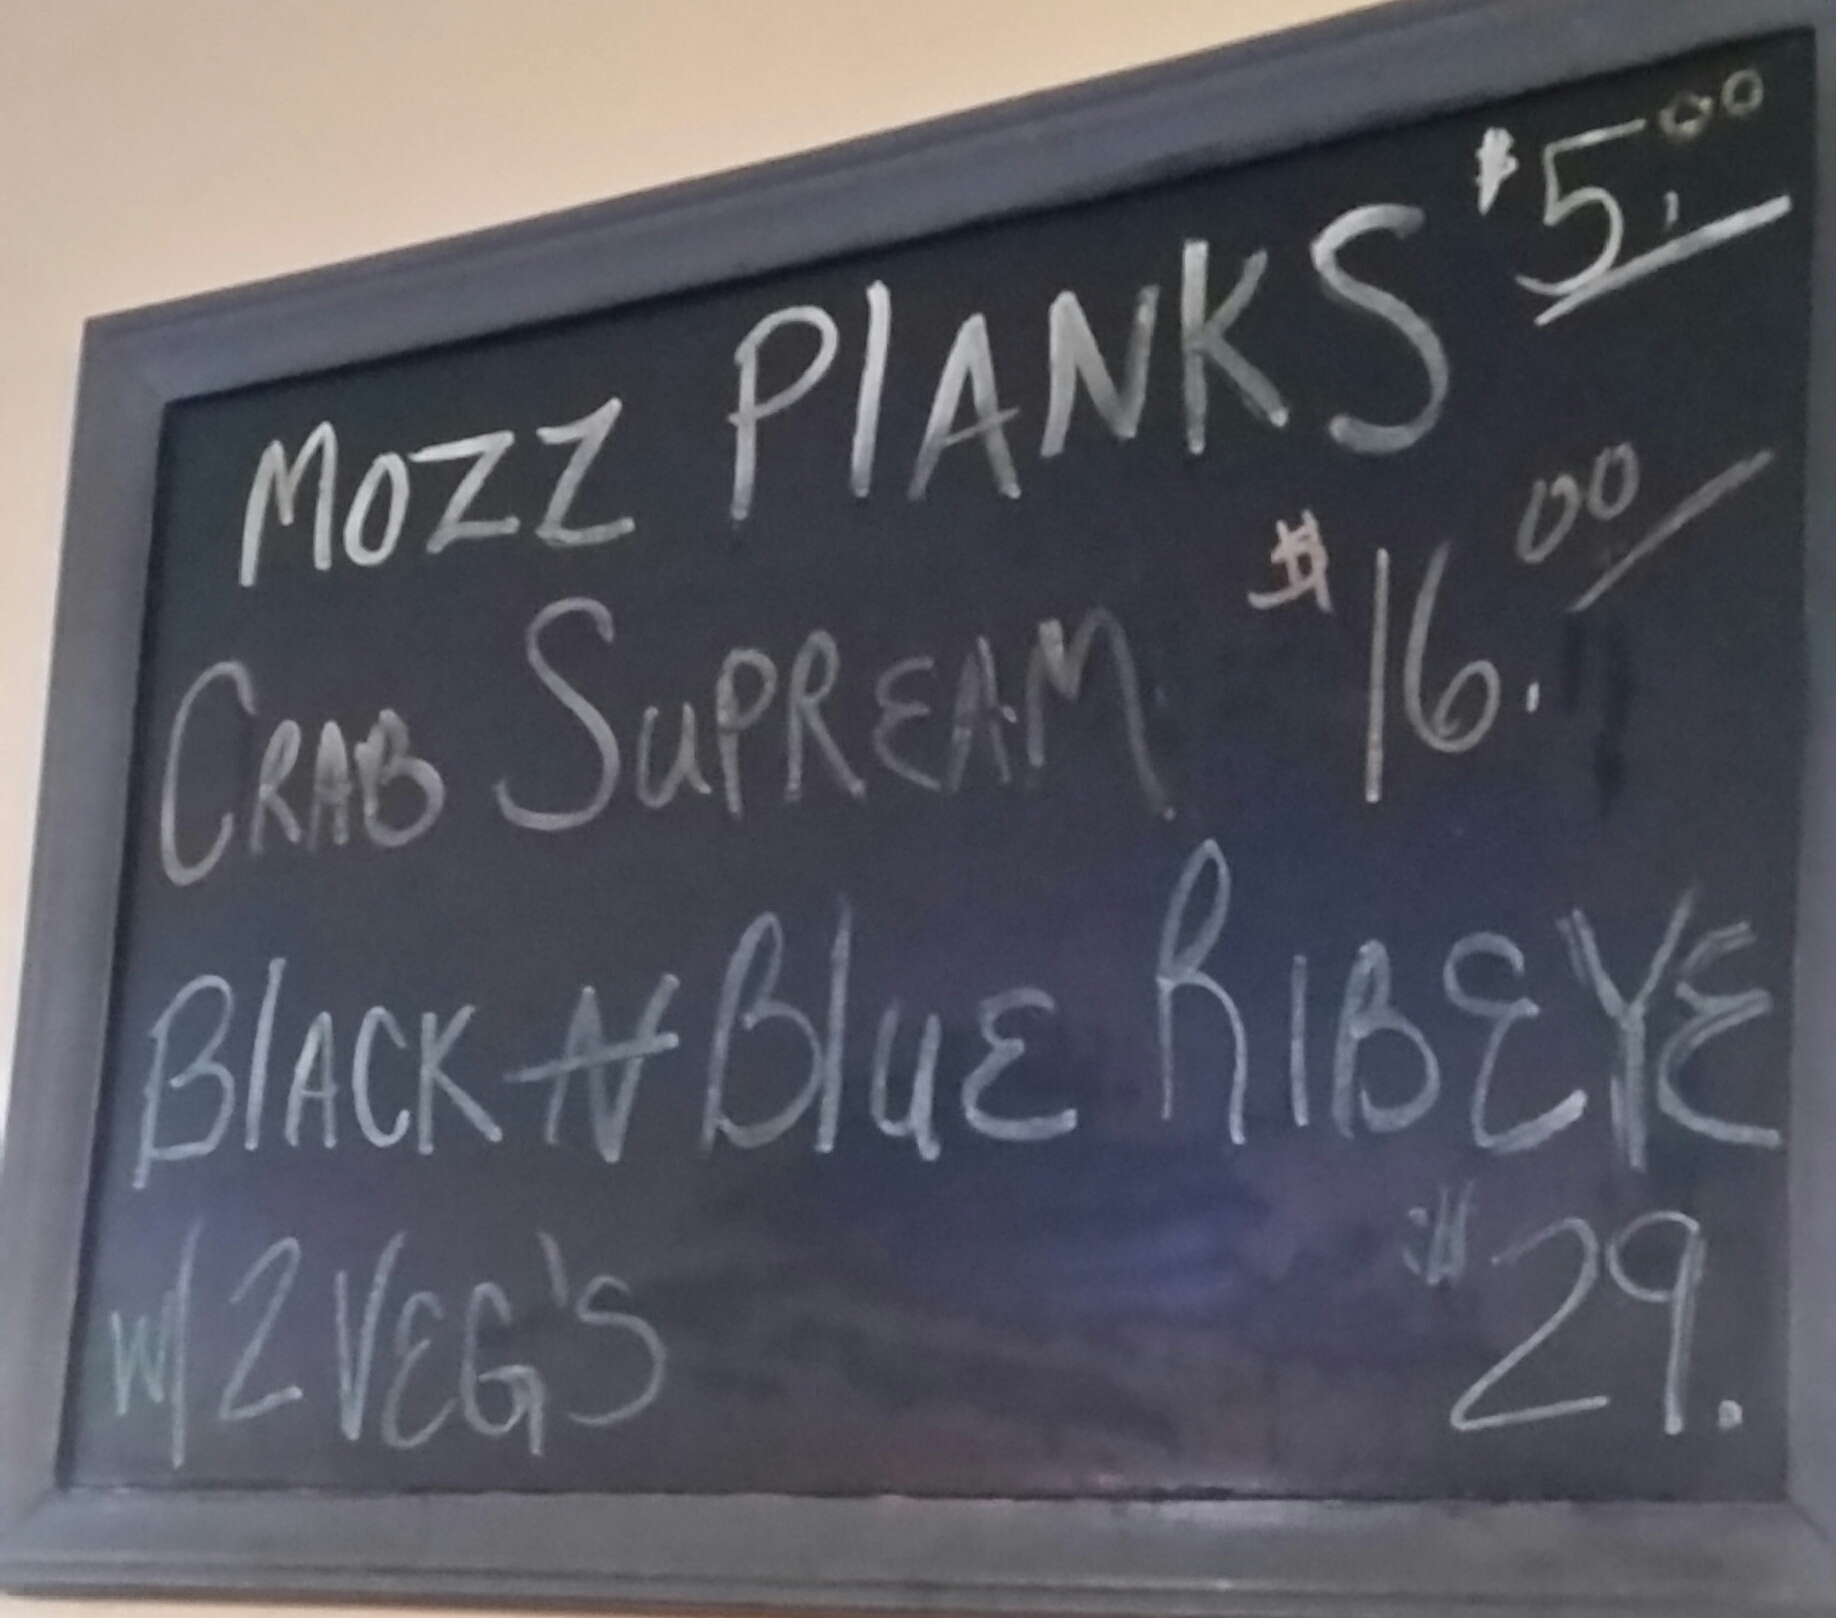 MOZZ PlANKS $5.00
CRAB SUPREAM $16.00
BlACK N BluE RIBEYE
w/ 2 VEG'S $29.